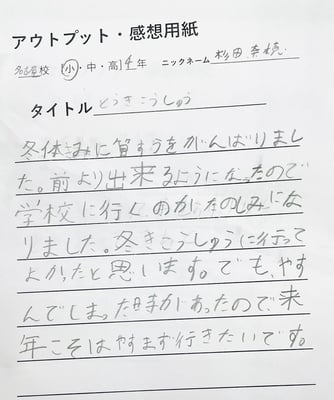 アウトプット・感想用紙
名古屋校 小・中・高 4年 ニックネーム 杉田
タイトル とうきこうしゅう
冬休みに算すうをがんばりまし
た。前より出来るようになったので
学校に行くのがたのしみにな
りました。冬きこうしゅうに行って
よかったと思います。でも、やす
んでしまった時があったので、来
年こそはやすまず行きたいです。